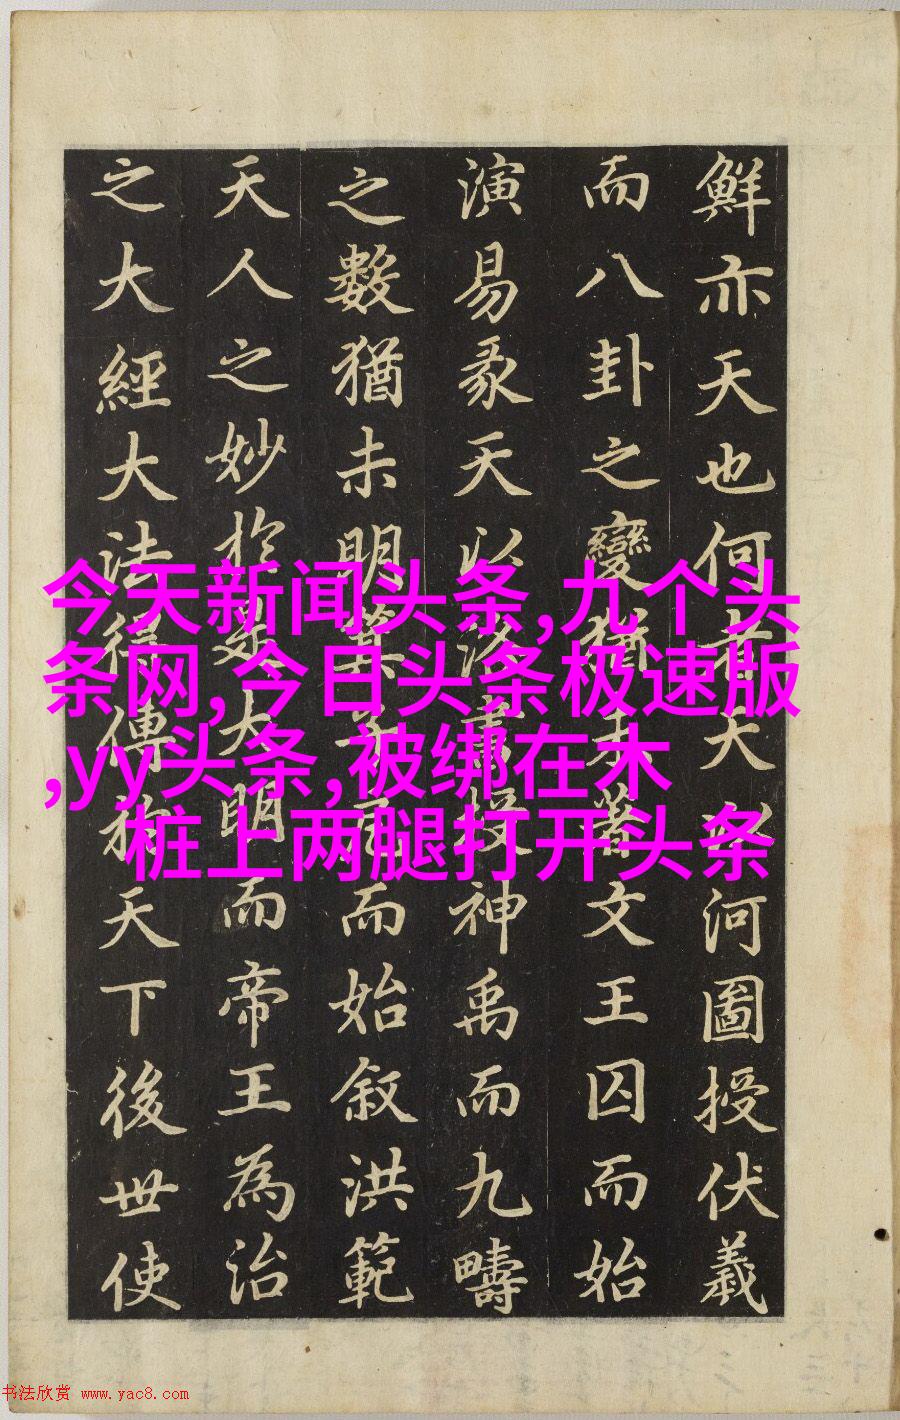 鮮亦天也何者天以河圖授伏羲
而八卦之變猶未著文王囚而始
演易彖天以洛書授神禹而九疇
之數猶未明箕子囚而始叙洪範
天人之妙於是大明而帝王為治
之大經大法得傳於天下後世使
今天新闻头条,九个头
条网,今日头条极速版
,yy头条,被绑在木
桩上两腿打开头条
书法欣赏 www.yac8.com